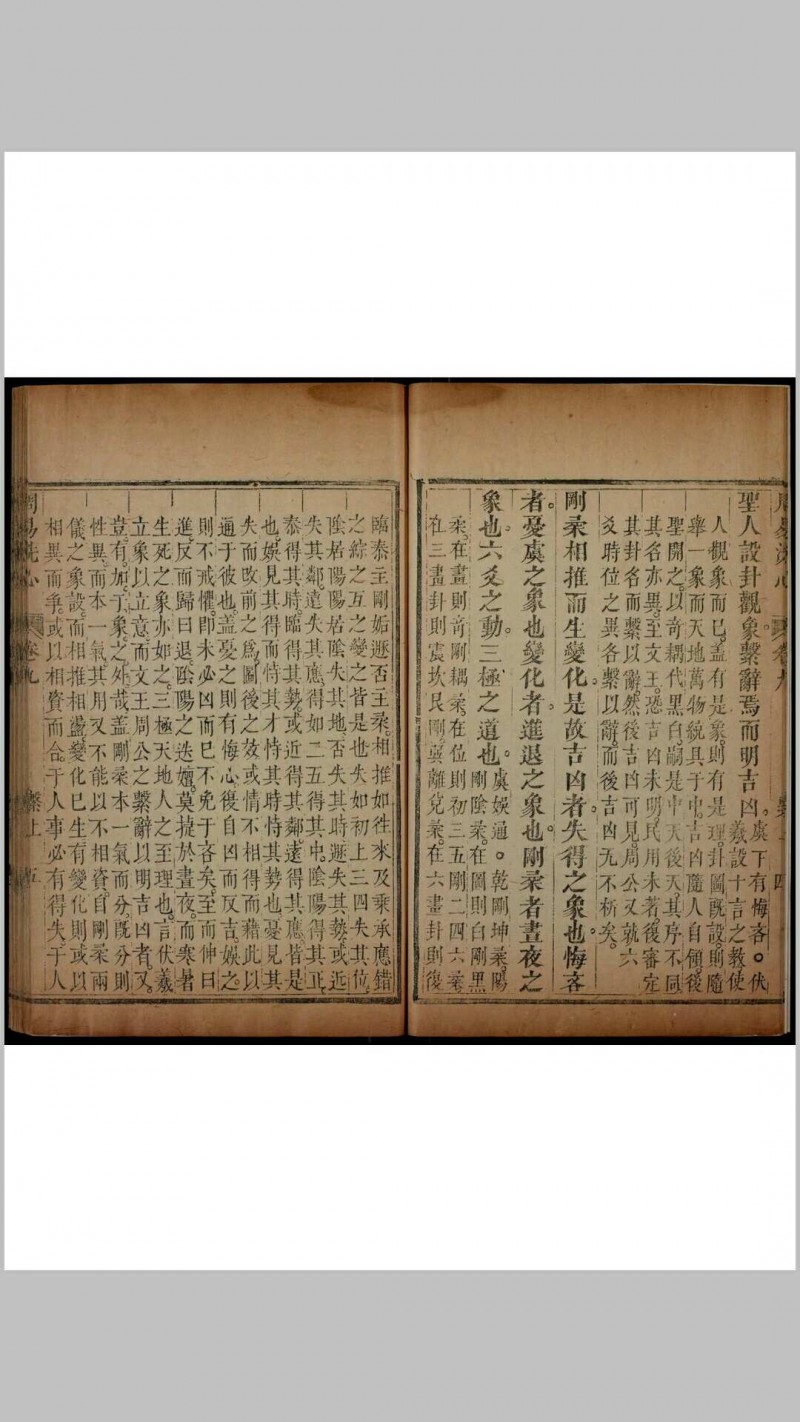 聖人設卦觀象繫辭焉而明吉凶。虞下有悔吝。○伏羲設十言之教使
人觀象而已。蓋有是象則有是理。卦圖既設則隨
舉一象而天地萬物統具于中。吉凶隨人自領。後
聖開之。以奇耦代黑白。嗣是中天後天。其序不同
其名亦異。至文王。恐吉凶未明。民用未著。後審定
其卦名而繫以辭。然後吉凶可見。周公又就六
爻時位之異各繫以辭。而後吉凶无不析矣。
剛柔相推而生變化。是故吉凶者失得之象也。悔吝
者。憂虞之象也。變化者。進退之象也。剛柔者晝夜之
象也。六爻之動。三極之道也。虞娛通。○乾剛坤柔。陽剛陰柔。在圖則白剛黑
柔。在畫則奇剛耦柔。在位則初三五剛二四六柔。
在三畫卦則震坎艮剛。巽離兌柔。在六畫卦則復
臨泰主剛。姤遯否主柔。相推如往來及乘承應錯
之綜之互之變之皆是也。失如初上三四失其位。
陰居陽陽居陰失其地。否失其時。遯失其勢。或近
失其鄰。遠失其應。得如二五得其中。陰陽得其正。
泰得其時。臨得其勢。或近得其鄰。遠得其應。皆是
也。娛見其得而恃其才恃其時恃其勢也。憂見其
失而改前之為。圖後之效。或情不相得而藉此以
通于彼也。蓋憂之則有悔心後自凶而反吉。娛之
則不戒懼即未必凶而已不免于吝矣。至而伸曰
進。反而歸曰退。陰陽之迭嬗。莫捷於晝夜。而寒暑
生死之象亦如之。三極天地人之至理也。言伏羲
立象以立意。而文王周公之繫辭以明吉凶者。又
豈有加于象之外哉。蓋剛柔本一氣而分。既分則
性異。而本一氣。其用又不能以不相資。自剛柔兩
儀之象設。而相推相盪變化已生。有變化則或以
相異而爭。或以相資而合。于人事必有得失。于人
周易洗心
卷九
繫上
五